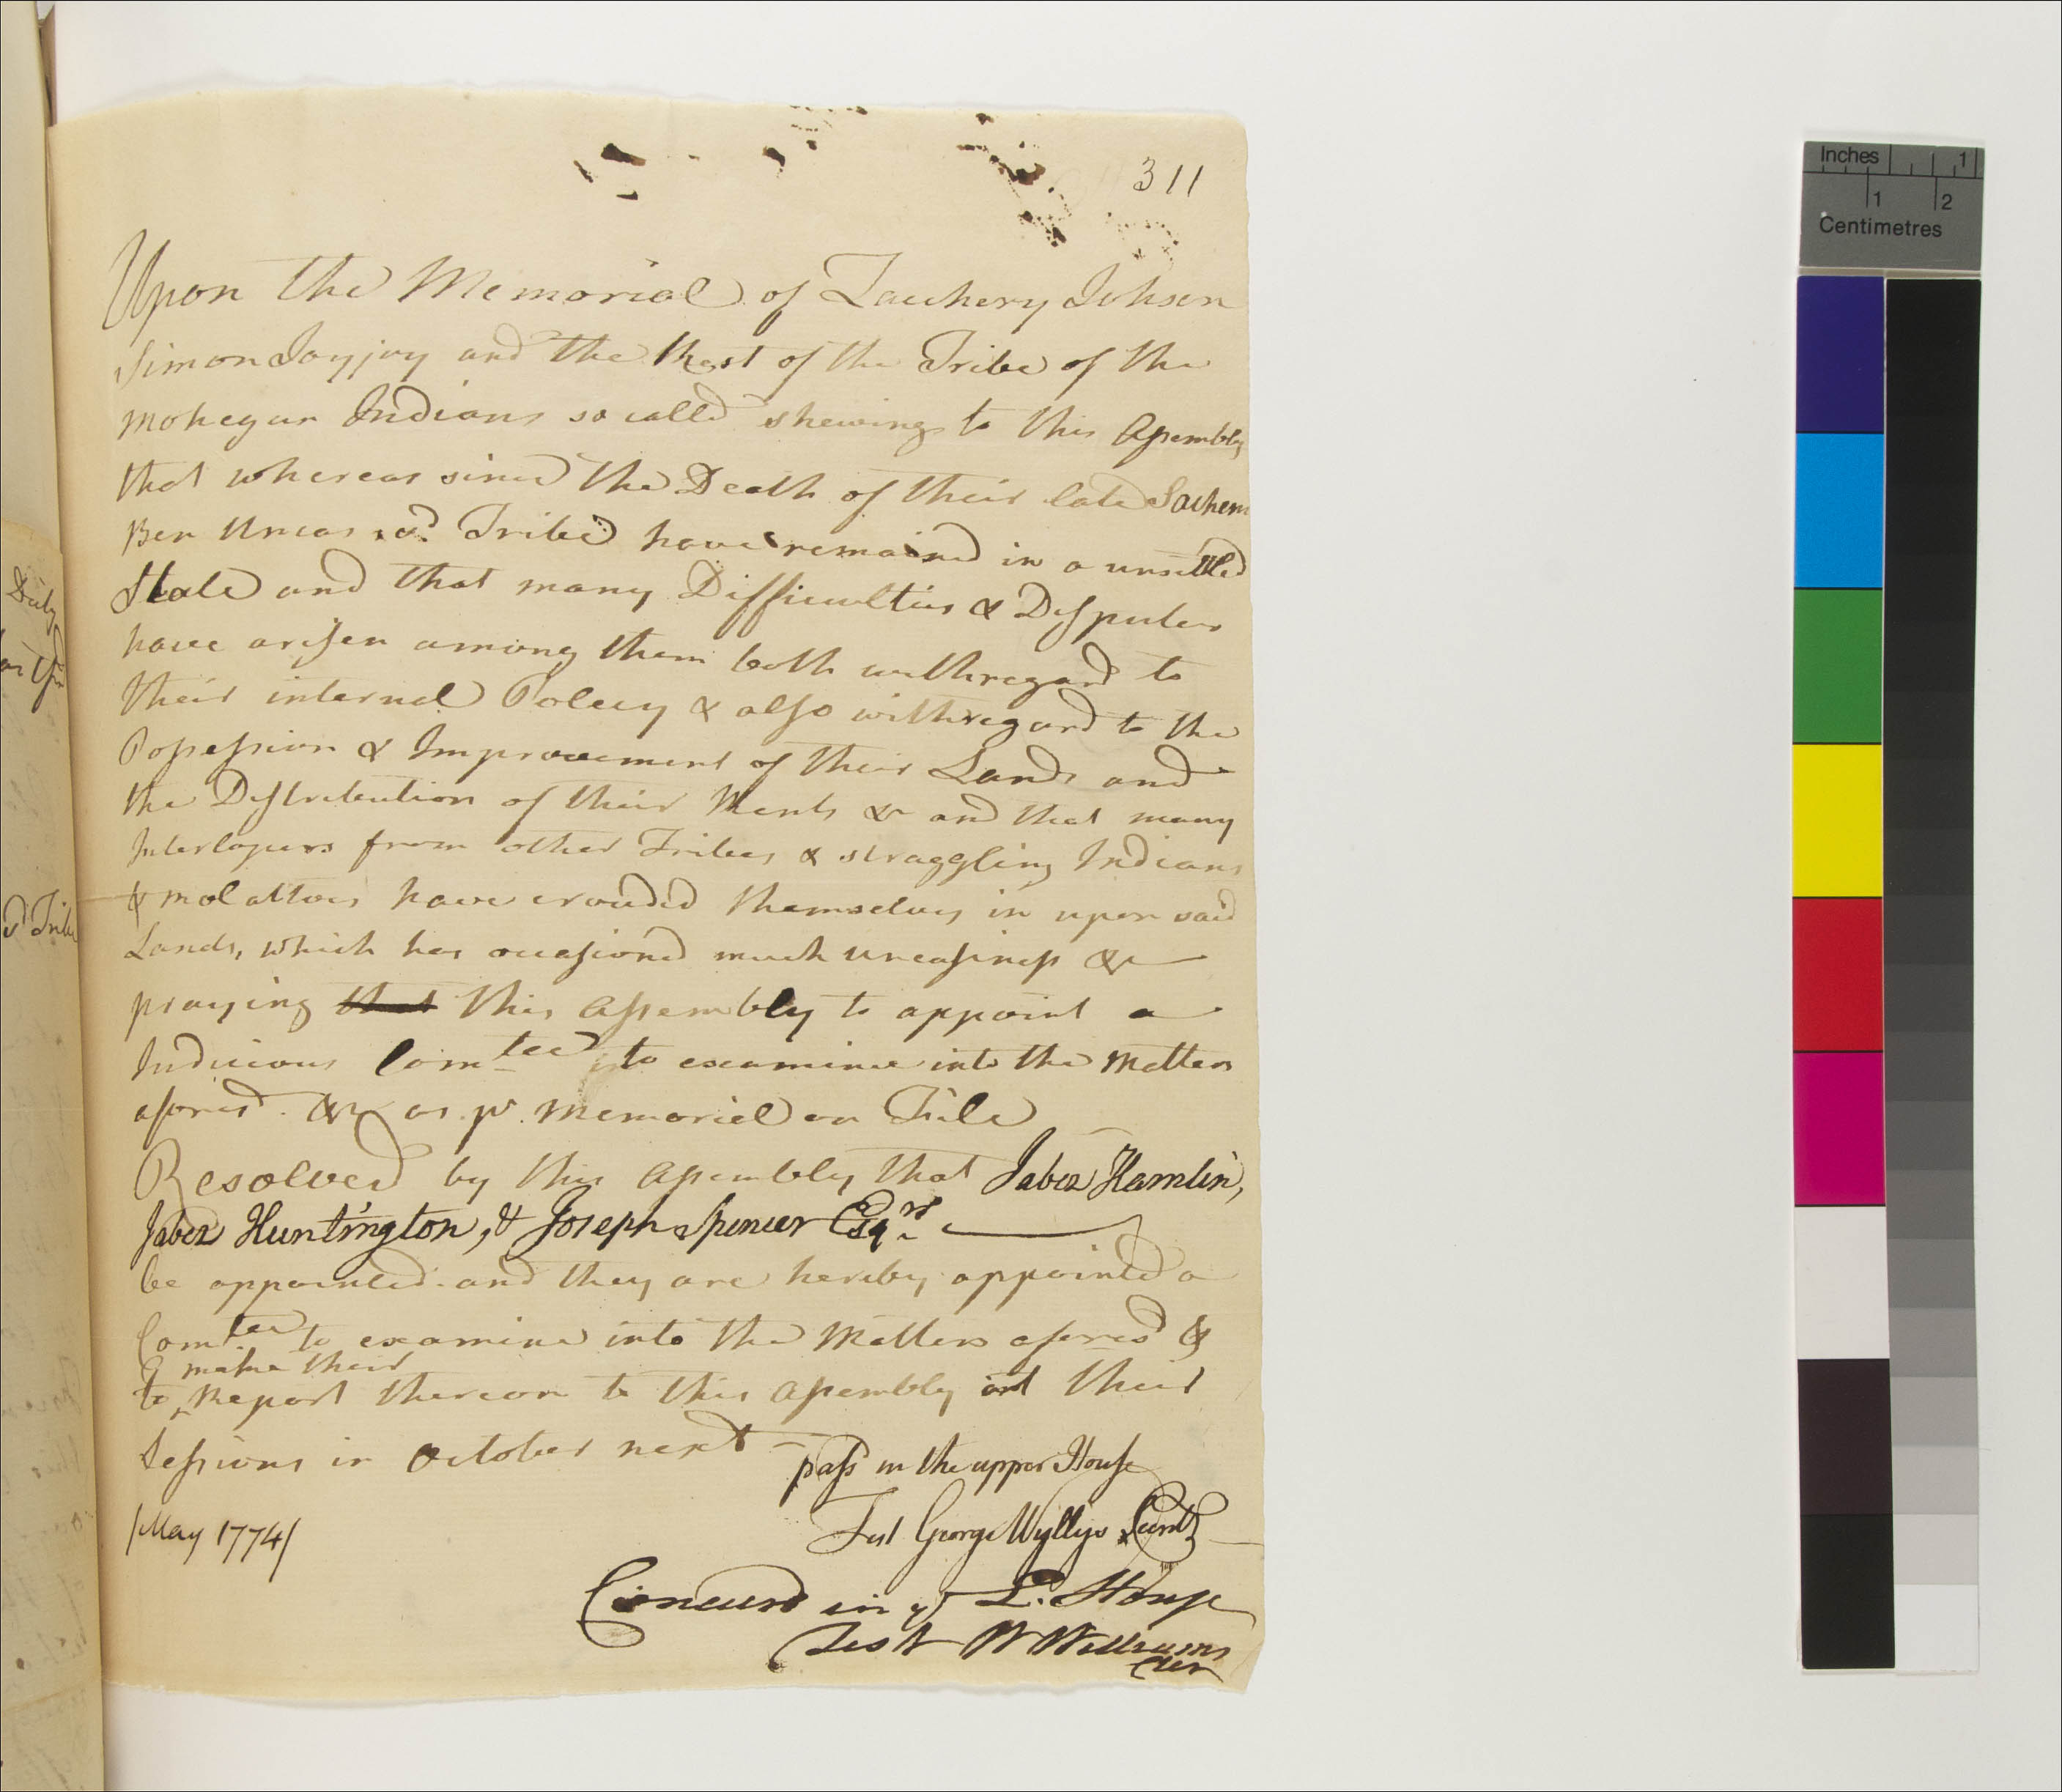 311
Upon the Memorial of Zachery Johson
Simon Joyjoy and the Rest of the Tribe of the
Mohegan Indians so calld shewing to this Assembly
that whereas since the Death of their late Sachem
Ben Uncas sd Tribe have remained in a unsettled
State and that many Difficulties & Disputes
have arisen among them both with regard to
their internal Policy & also with regard to the
Possession & Improvement of their Lands and
the Distribution of their Rents &c and that many
Interlopers from other Tribes & straggling Indians
& molattoes have crouded themselves in upon said
Lands, which has occasioned much uneasiness &c
praying that this Assembly to appoint a
Judicious Comtee to examine into the Matters
aforesd. &c as pr. Memorial on File
Resolved by this Assembly that Jabez Hamlin,
Jabez Huntington, & Joseph Spencer Esqrs
be appointed and they are hereby appointed a
Comtee to examine into the Matters aforesd &
make their
to Report thereon to this Assembly at their
Sessions in October next
pass'd in the upper House
Test George Wyllys Secretry
/May 1774/
Concurd in ye L. House
Test W Williams
Cler
Duly
sd Tribe
Inches 1
1 2
Centimetres